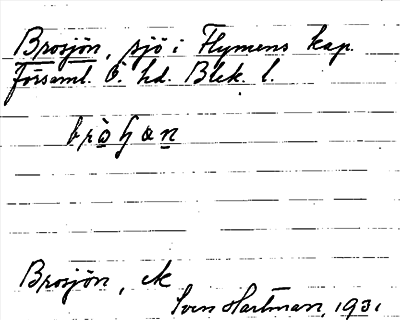 Brosjön, sjö i Flymens kap.
församl. Ö. hd. Blek. l.
Brosjön, ek
Sven Hartman, 1931